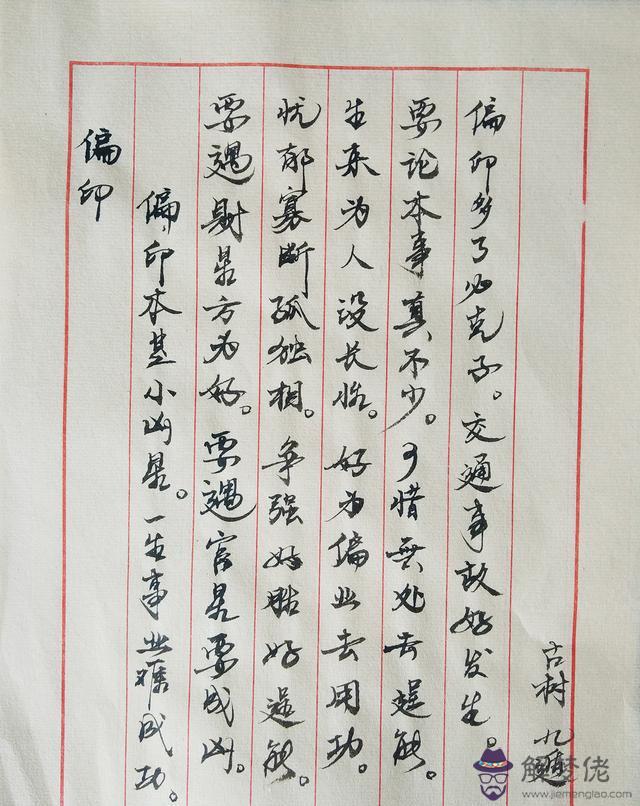 偏印
偏印本是小凶星。一生事业難成功。
要遇财星方为好。要遇官星要成凶。
忧郁寡断孤独相。争强好胜好逞能。
生来为人没长。好为偏业去用功。
要论本事真不少。可惜無处去逞能。
偏印多了必克子。交通事故好发生。
古树 九
解梦佬
www.jiemenglao.com